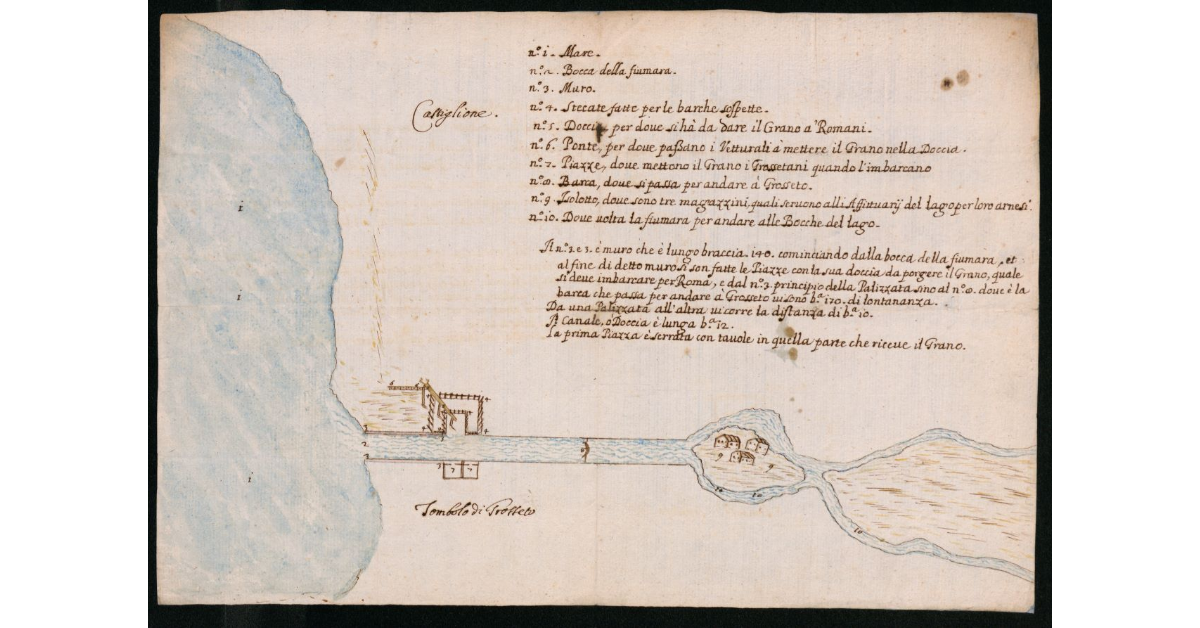 n.º 1. Mare.
n.º 2. Bocca della fiumara.
n.º 3. Muro.
Castiglione.
n.º 4. Steccate fatte per le barche sospette.
n.º 5. Doccia per dove si hà da dare il Grano a' Romani.
n.º 6. Ponte, per dove passano i Vetturali à mettere il Grano nella Doccia.
n.º 7. Piazze, dove mettono il Grano i Grossetani quando l'imbarcano
n.º 8. Barca, dove si passa per andare à Grosseto.
n.º 9. Isolotto, dove sono tre magazzini, quali servono alli Affittuarij del lago per loro arnesi.
n.º 10. Dove volta la fiumara per andare alle Bocche del lago.
Il n.º 2. e 3. è muro che è lungo braccia 140. cominciando dalla bocca della fiumara, et
al fine di detto muro si son fatte le Piazze con la sua doccia da porgere il Grano, quale
si deve imbarcare per Roma, e dal n.º 3. principio della Palizzata sino al n.º 8. dove è la
barca che passa per andare à Grosseto vi sono b.ª 170. di lontananza.
Da una Palizzata all'altra vi corre la distanza di b.ª 10.
Il Canale, ò Doccia è lunga b.ª 12.
la prima Piazza è serrata con tavole in quella parte che riceve il Grano.
1
1
1
3
2
3
7 7
8
9 9
10 10
10
Tombolo di Grosseto